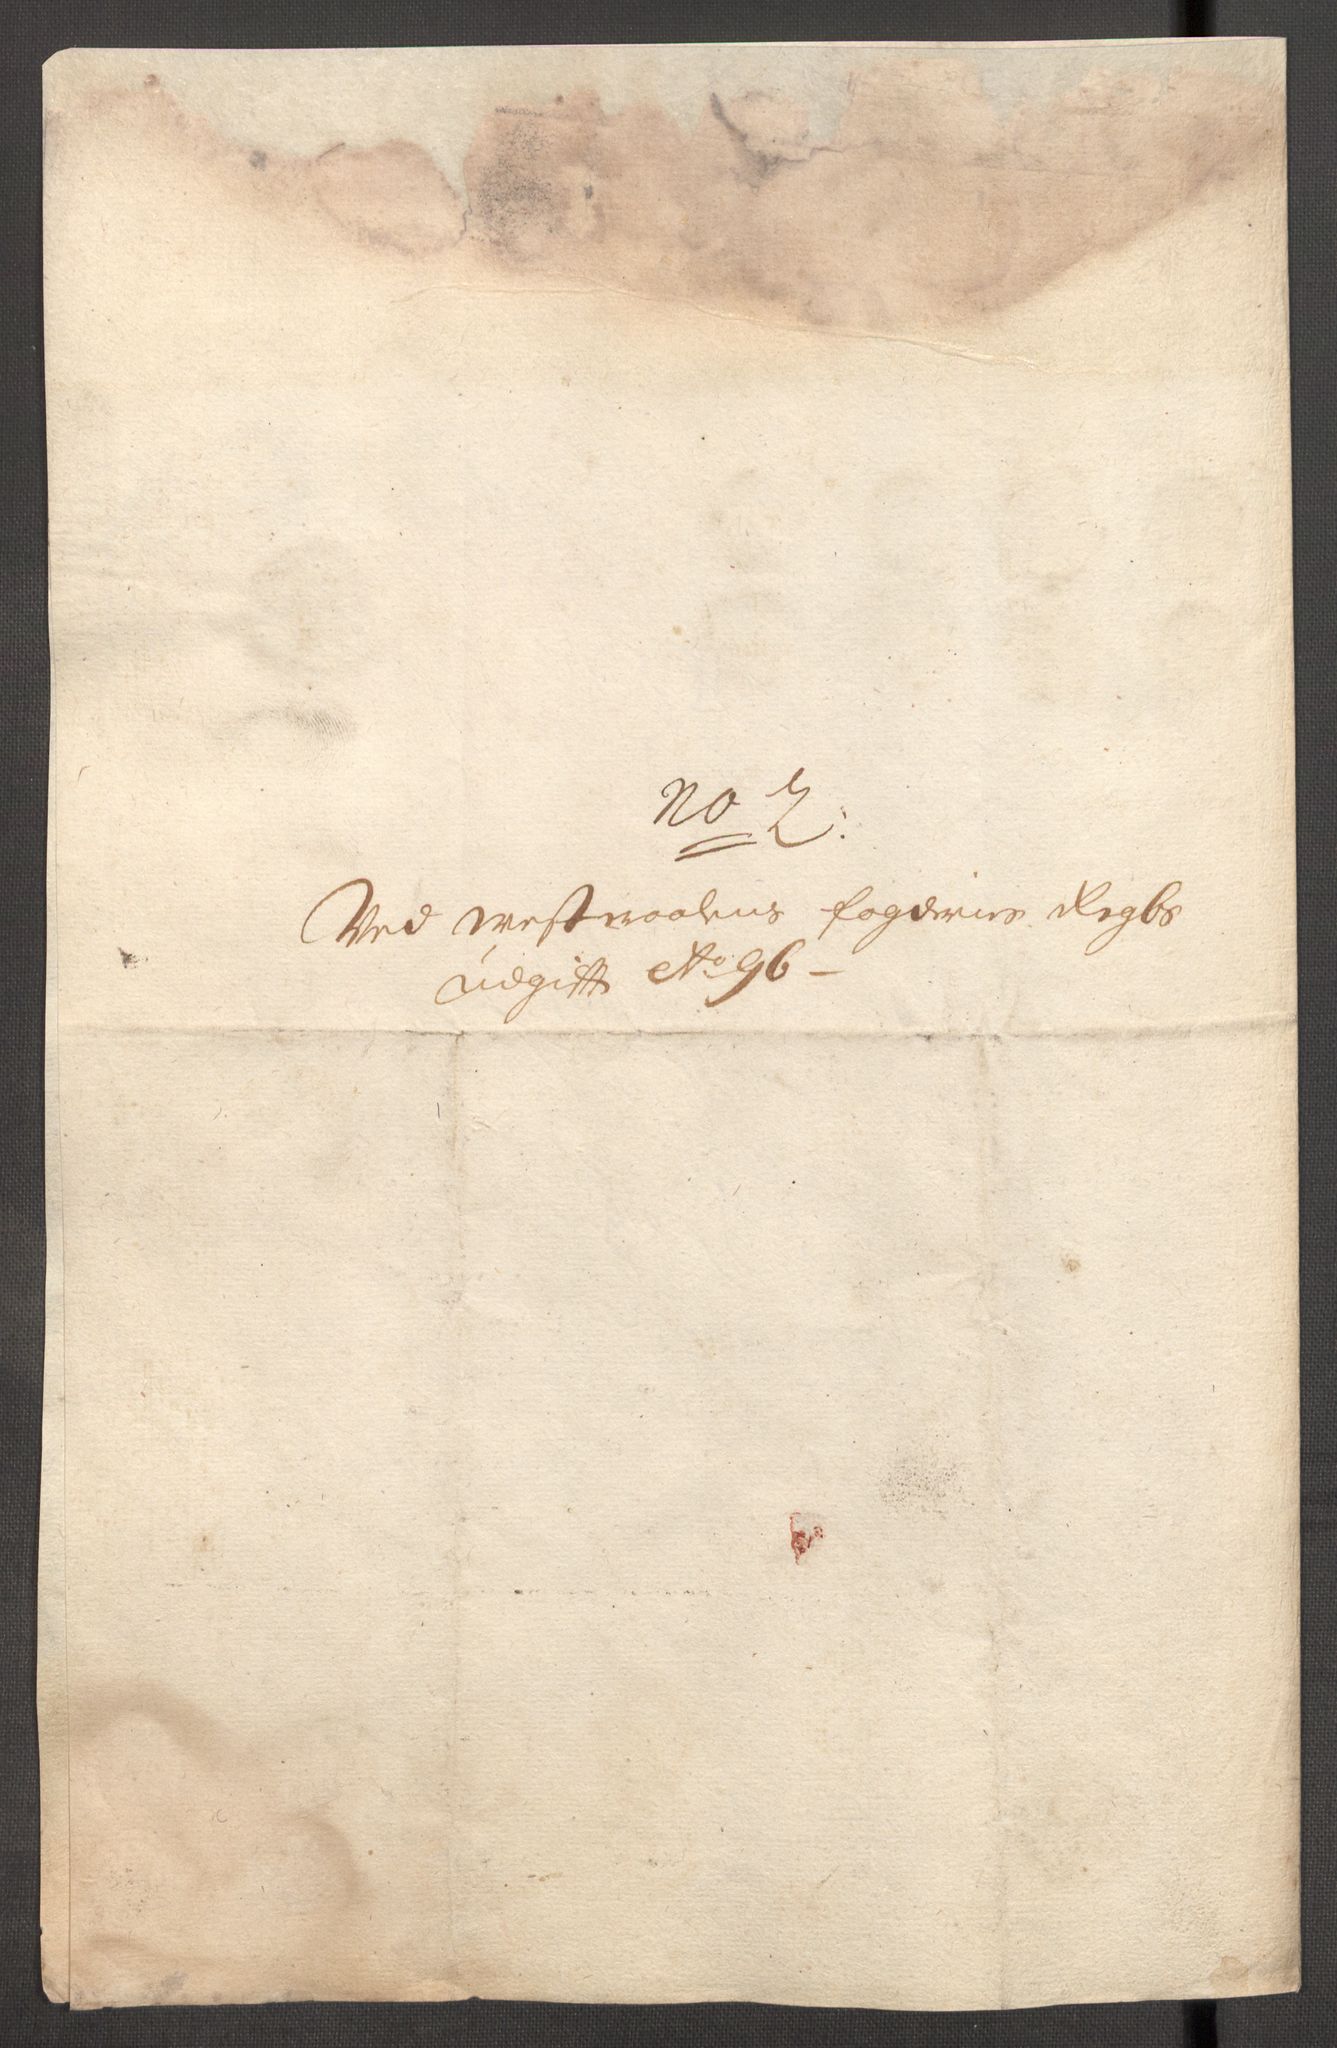 No 2:
Ved Westraalens fogderies Regbs
Udgifft Ao 96 -